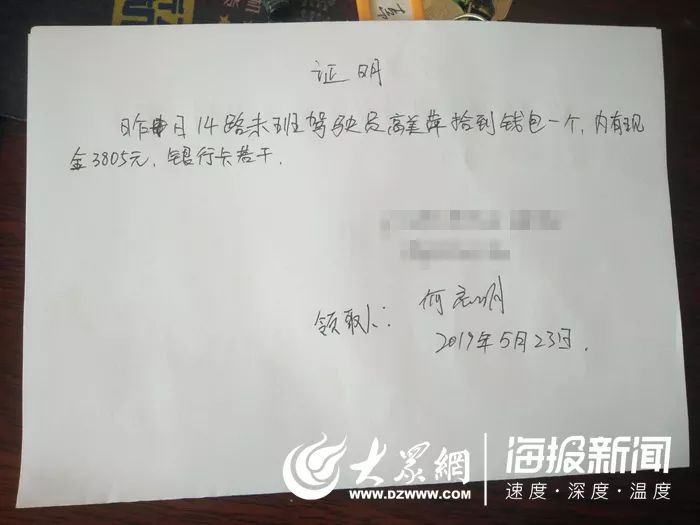 证明
昨日14路末班驾驶员高美萍拾到钱包一个,内有现
金3805元,银行卡若干.
领取人:
2019年5月23日.
大众網
WWW.DZWWW.COM
海报新闻
速度·深度·温度